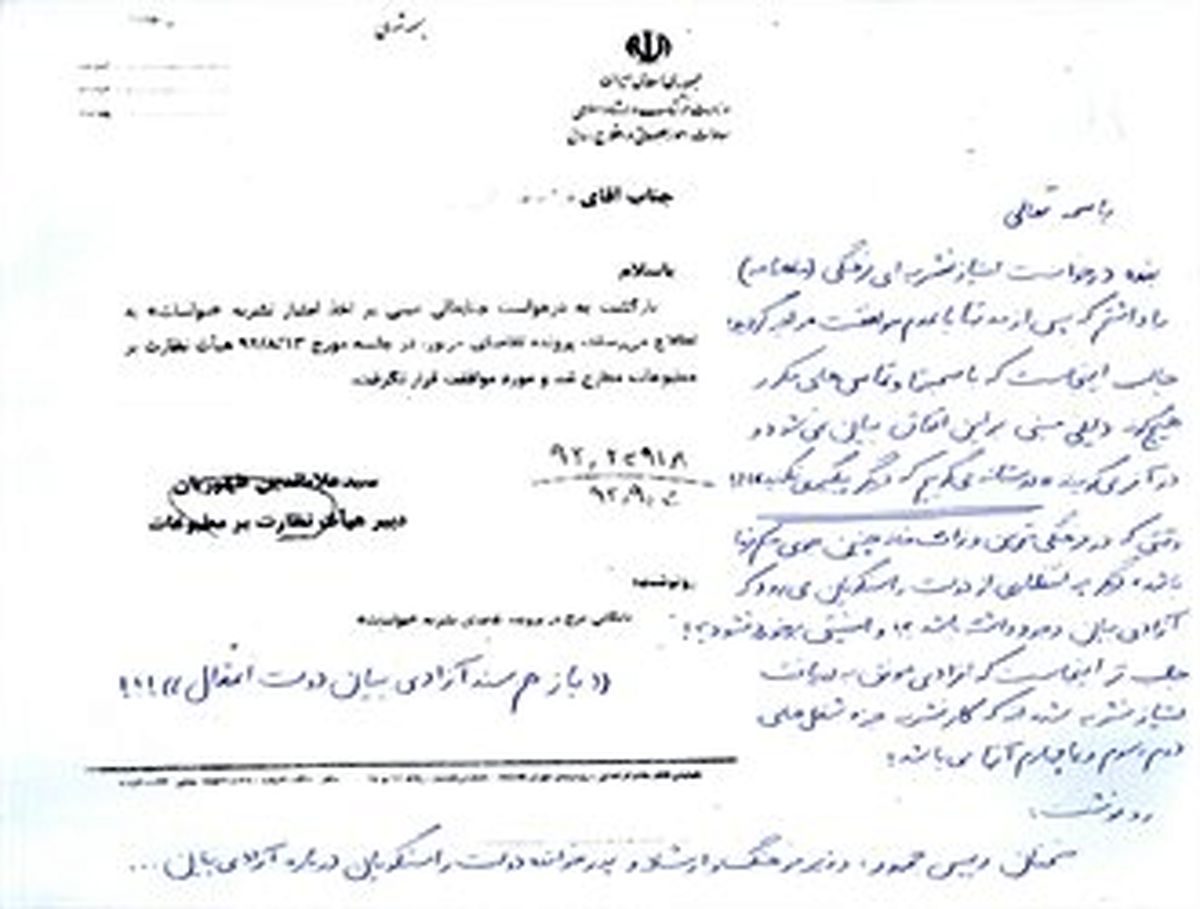 بسمه تعالی
جمهوری اسلامی ایران
وزارت فرهنگ و ارشاد اسلامی
معاونت امور مطبوعاتی و اطلاع رسانی
جناب آقای
باسلام
بازگشت به درخواست جنابعالی مبنی بر اخذ امتیاز نشریه «سیاست» به
اطلاع می‌رساند، پرونده تقاضای مزبور، در جلسه مورخ هیأت نظارت بر
مطبوعات مطرح شد و مورد موافقت قرار نگرفت.
سید علاءالدین ظهوریان
دبیر هیأت نظارت بر مطبوعات
رونوشت:
بایگانی درج در پرونده تقاضای نشریه
«باز هم سند آزادی بیان دولت اعتدال» !!!
باسمه تعالی
بنده درخواست امتیاز نشریه ای فرهنگی (ماهنامه)
را داشتم که پس از مدتها با عدم موافقت مواجه گردید!
جالب اینجاست که با صحبتها و تماس های مکرر
هیچگونه دلیلی مبنی بر این اتفاق بیان نمی شود و
در آخر می گویند دوستانه می گوییم که دیگر پیگیری نکنید!!!
وقتی که در فرهنگی ترین وزارت خانه چنین جوی حکم فرما
باشد دیگر چه انتظاری از دولت راستگویان می رود که
آزادی بیان وجود داشته باشد ؟! و امنیتی برخورد نشود؟!
جالب تر اینجاست که افرادی موفق به دریافت
امتیاز نشریه شده اند که کار نشریه جزء شغل های
دوم، سوم و یا چهارم آنها می باشد!
رونوشت:
رییس جمهور، وزیر فرهنگ و ارشاد و دولت راستگویان درباره آزادی بیان ...